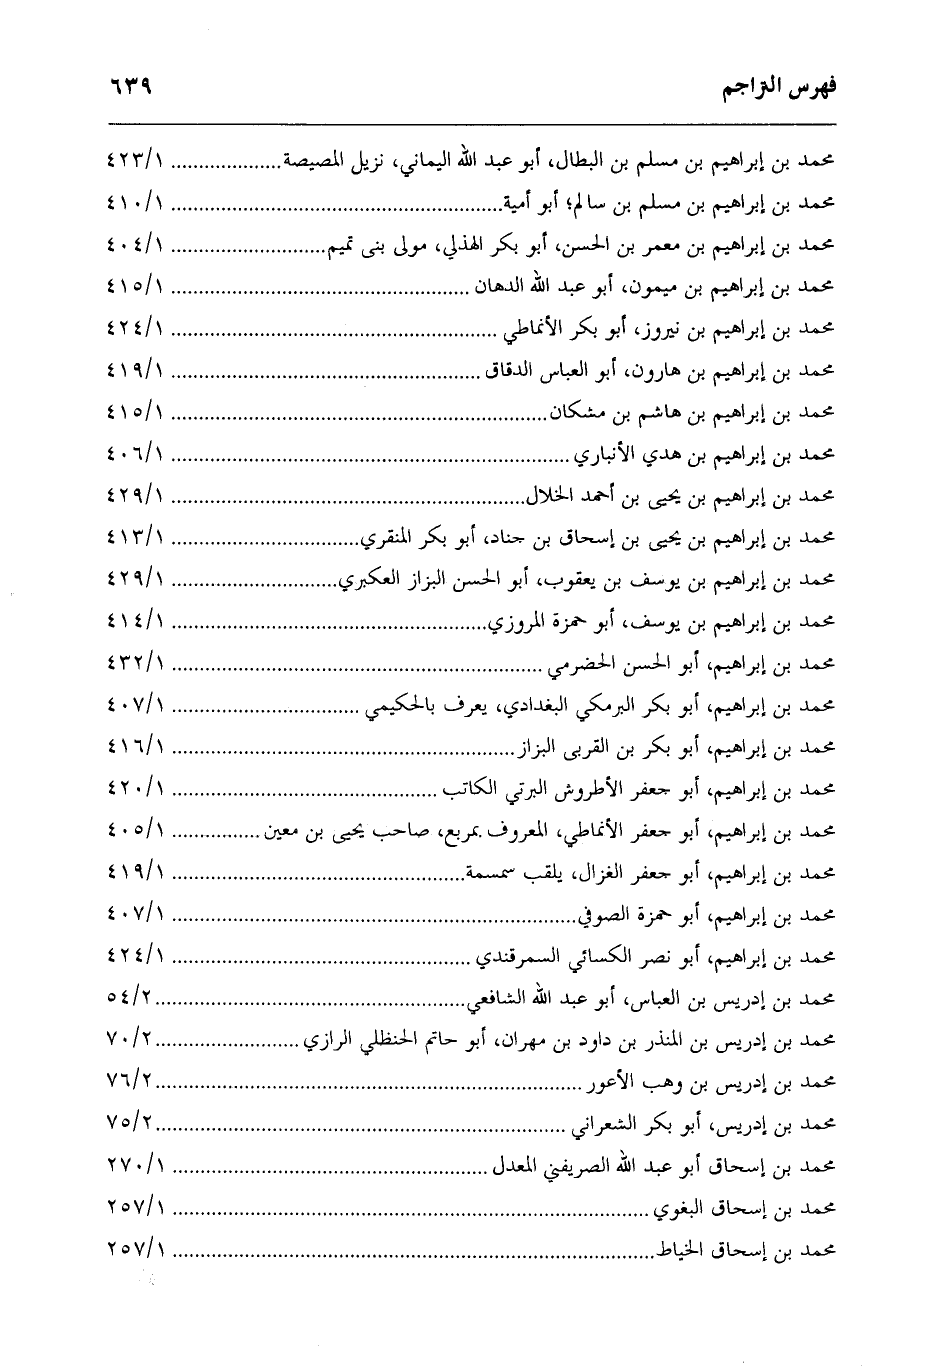 فهرس التراجم ٦٣٩
محمد بن إبراهيم بن مسلم بن البطال، أبو عبد الله اليماني، نزيل المصيصة .................... ٤٢٣/١
محمد بن إبراهيم بن مسلم بن سالم؛ أبو أمية ............................................................ ٤١٠/١
محمد بن إبراهيم بن معمر بن الحسن، أبو بكر الهذلي، مولى بنى تميم ............................ ٤٠٤/١
محمد بن إبراهيم بن ميمون، أبو عبد الله الدهان ...................................................... ٤١٥/١
محمد بن إبراهيم بن نيروز، أبو بكر الأنماطي ........................................................... ٤٢٤/١
محمد بن إبراهيم بن هارون، أبو العباس الدقاق ........................................................ ٤١٩/١
محمد بن إبراهيم بن هاشم بن مشكان .................................................................... ٤١٥/١
محمد بن إبراهيم بن هدي الأنباري ........................................................................ ٤٠٦/١
محمد بن إبراهيم بن يحيى بن أحمد الخلال ................................................................ ٤٢٩/١
محمد بن إبراهيم بن يحيى بن إسحاق بن جناد، أبو بكر المنقري .................................. ٤١٣/١
محمد بن إبراهيم بن يوسف بن يعقوب، أبو الحسن البزاز العكبري .............................. ٤٢٩/١
محمد بن إبراهيم بن يوسف، أبو حمزة المروزي ......................................................... ٤١٤/١
محمد بن إبراهيم، أبو الحسن الحضرمي ................................................................... ٤٣٢/١
محمد بن إبراهيم، أبو بكر البرمكي البغدادي، يعرف بالحكيمي .................................. ٤٠٧/١
محمد بن إبراهيم، أبو بكر بن القربى البزاز .............................................................. ٤١٦/١
محمد بن إبراهيم، أبو جعفر الأطروش البرتي الكاتب ................................................ ٤٢٠/١
محمد بن إبراهيم، أبو جعفر الأنماطي، المعروف بمربع، صاحب يحيى بن معين ................ ٤٠٥/١
محمد بن إبراهيم، أبو جعفر الغزال، يلقب سمسمة ..................................................... ٤١٩/١
محمد بن إبراهيم، أبو حمزة الصوفي ......................................................................... ٤٠٧/١
محمد بن إبراهيم، أبو نصر الكسائي السمرقندي ...................................................... ٤٢٤/١
محمد بن إدريس بن العباس، أبو عبد الله الشافعي ........................................................ ٥٤/٢
محمد بن إدريس بن المنذر بن داود بن مهران، أبو حاتم الحنظلي الرازي .......................... ٧٠/٢
محمد بن إدريس بن وهب الأعور ............................................................................. ٧٦/٢
محمد بن إدريس، أبو بكر الشعراني .......................................................................... ٧٥/٢
محمد بن إسحاق أبو عبد الله الصريفني المعدل ......................................................... ٢٧٠/١
محمد بن إسحاق البغوي ...................................................................................... ٢٥٧/١
محمد بن إسحاق الخياط ....................................................................................... ٢٥٧/١